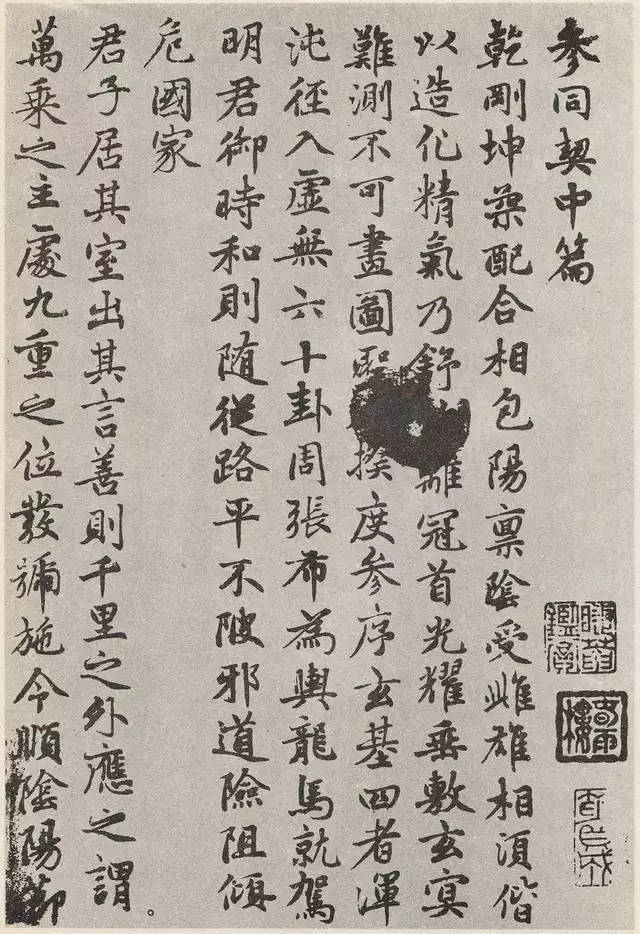 叅同契中篇
乾剛坤柔配合相包陽禀陰受雌雄相須偕
以造化精氣乃舒離冠首光耀垂敷玄冥
難測不可盡圖聖揆度叅序玄基四者渾
沌徑入虛無六十卦周張布為輿龍馬就駕
明君御時和則随從路平不陂邪道險阻傾
危國家
君子居其室出其言善則千里之外應之謂。
萬乘之主處九重之位發號施令順陰陽節